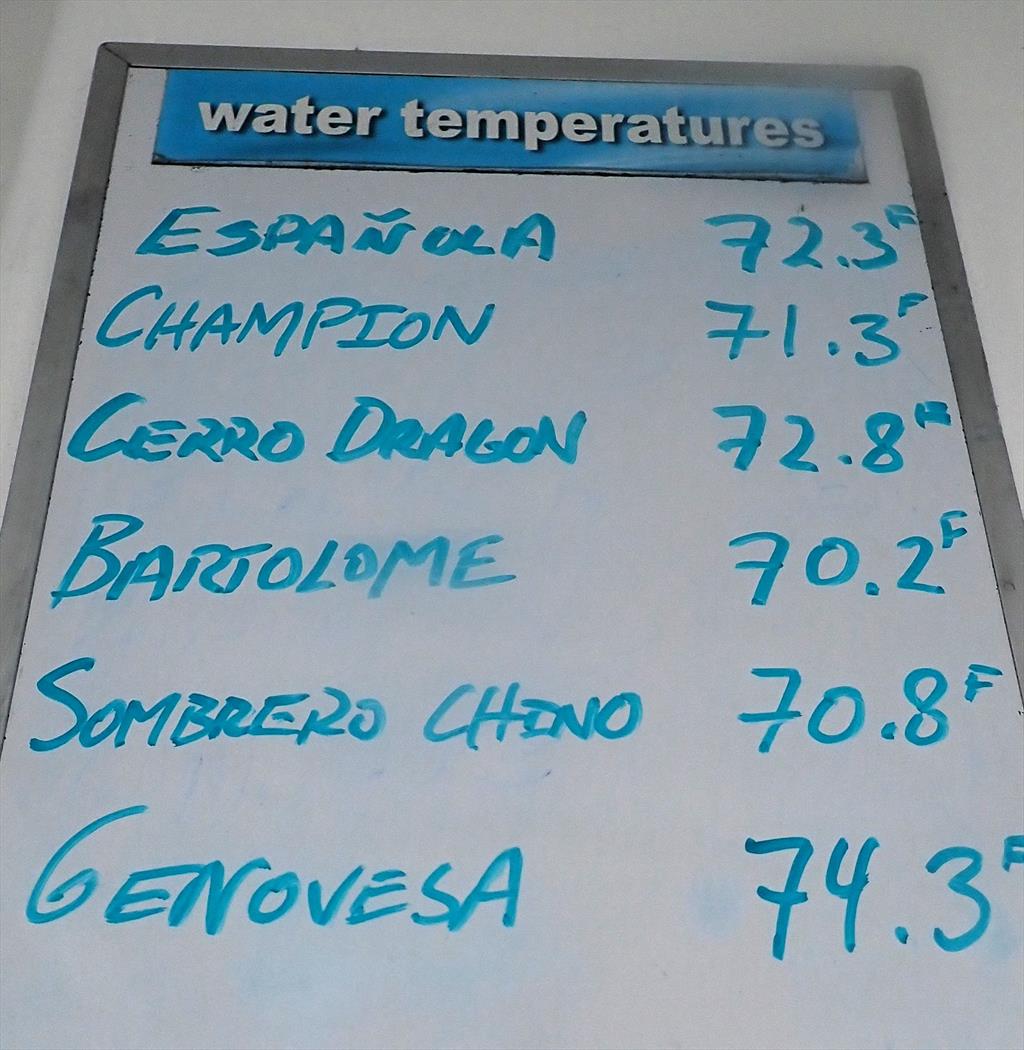 water temperatures
ESPAÑOLA 72.3F
CHAMPION 71.3F
CERRO DRAGON 72.8F
BARTOLOME 70.2F
SOMBRERO CHINO 70.8F
GENOVESA 74.3F